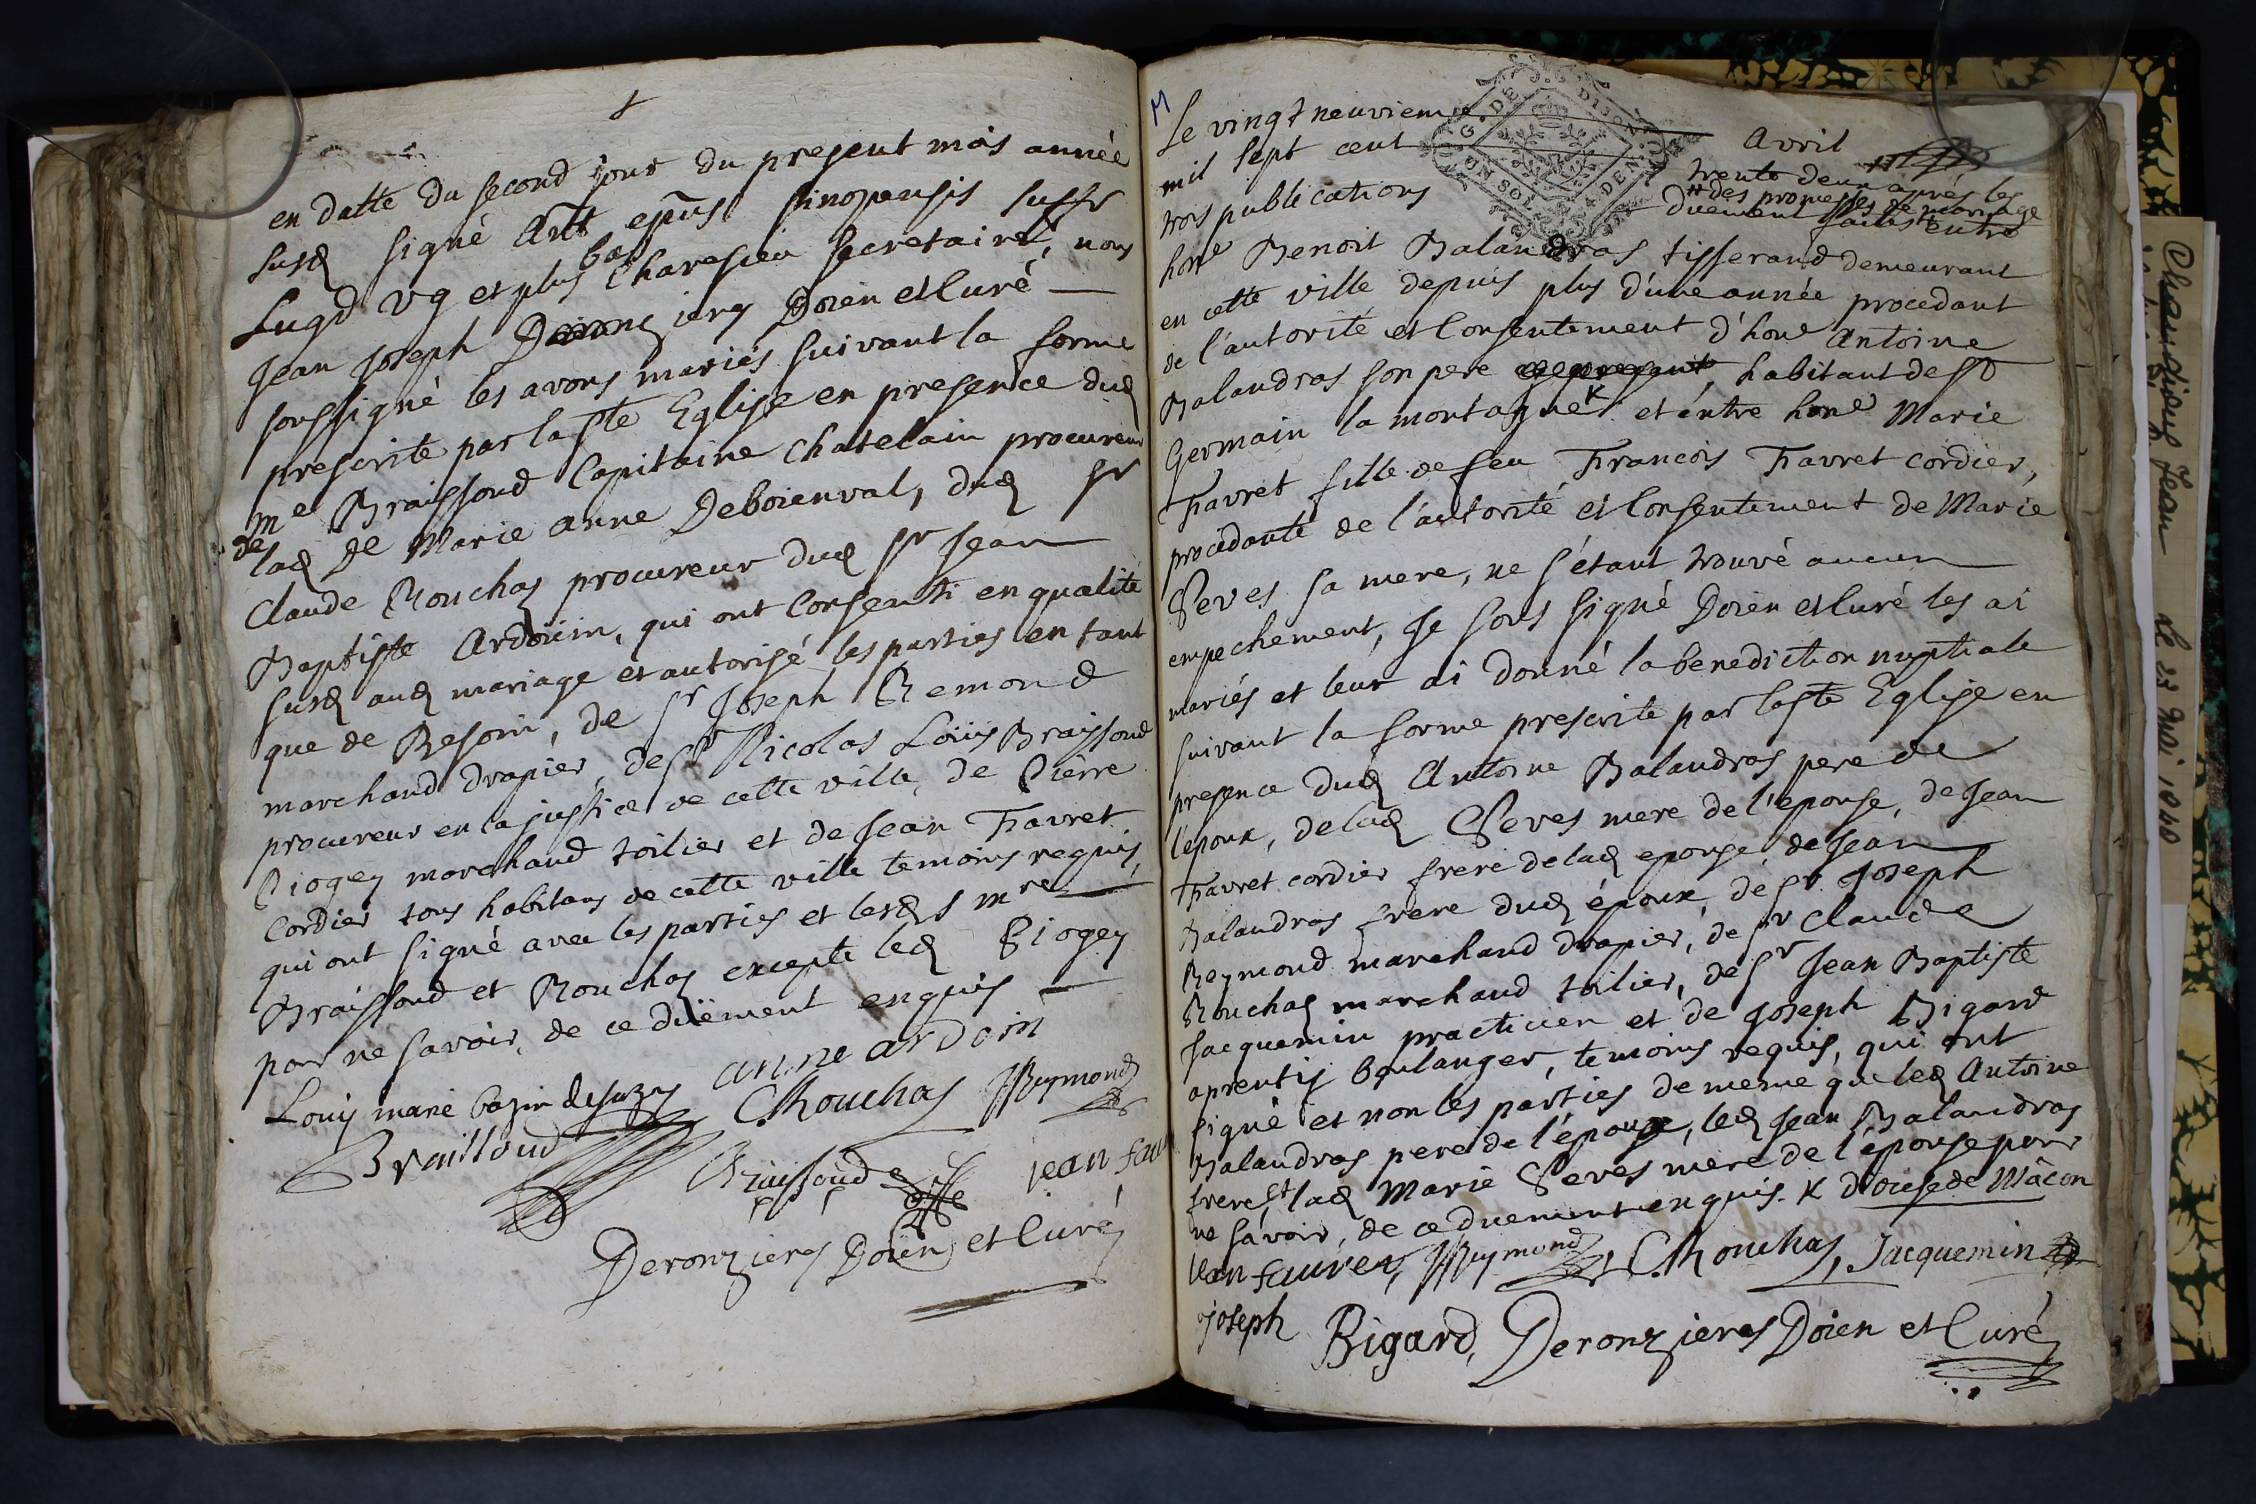 en datte du second jour du present mois année
susd signé Ant epus sinopensis suffr
Lugd vg et plus bas Charesieu secretaire, nous
Jean Joseph Deronzieres Doien et Curé
soussigné les avons mariés suivant la forme
prescrite par la ste Eglise en presence dud
me Braissoud Capitaine Chatelain procureur de
lad De Marie anne Deboienval, dud sr
Claude Rouchas procureur dud sr Jean
Baptiste Ardoüin, qui ont Consenti en qualité
susd aud mariage et autorisé les parties en tant
que de Besoin, de sr Joseph Remond
marchand drapier, de sr Nicolas Loüis Braissoud
procureur en la justice de cette ville, de Pierre
Piogey marchand toilier et de Jean Favret
Cordier tous habitans de cette ville temoins requis,
qui ont signé avec les parties et lesd s mre
Braissoud et Rouchas excepte led Piogey
pour ne savoir, de ce düement enquis
Louis marie bazin desuzy anne ardoin
Braissoud C Rouchas JReymond
Braissoud jean fau
Deronzieres Doien et Curé
M
Le vingt neuvieme Avril
mil sept cent trente deux aprés les
trois publications des promesses de mariage duement faites entre
hone Benoit Balandras tisserand demeurant
en cette ville depuis plus d'une année procedant
de l'autorité et Consentement d'hone Antoine
Balandras son pere habitant de st
Germain la montagne x et entre hone Marie
Favret fille de feu Francois Favret cordier,
procedante de l'autorité et Consentement de Marie
Seves sa mere, ne s'étant trouvé aucun
empechement, Je sous signé Doien et Curé les ai
mariés et leur ai donné la benediction nuptiale
suivant la forme prescrite par la ste Eglise en
presence dud Antoine Balandras pere de
l'epoux, de lad Seves mere de l'epouse, de Jean
Favret cordier frere de lad epouse, de Jean
Balandras frere dud époux, de sr Joseph
Reymond marchand drapier, de sr Claude
Rouchas marchand toilier, de sr Jean Baptiste
Jacquemin practicien et de Joseph Bigard
aprentis boulanger, temoins requis, qui ont
signé et non les parties de meme que led Antoine
Balandras pere de l'époux, led Jean Balandras
frere et lad Marie Seves mere de l'épouse pour
ne sávoir, de ce duement enquis. x diocese de Mâcon
Jean fauret, JReymond, C. Rouchas, Jacquemin
joseph Bigard, Deronzieres Doien et Curé
G. DE DIJON
Jean